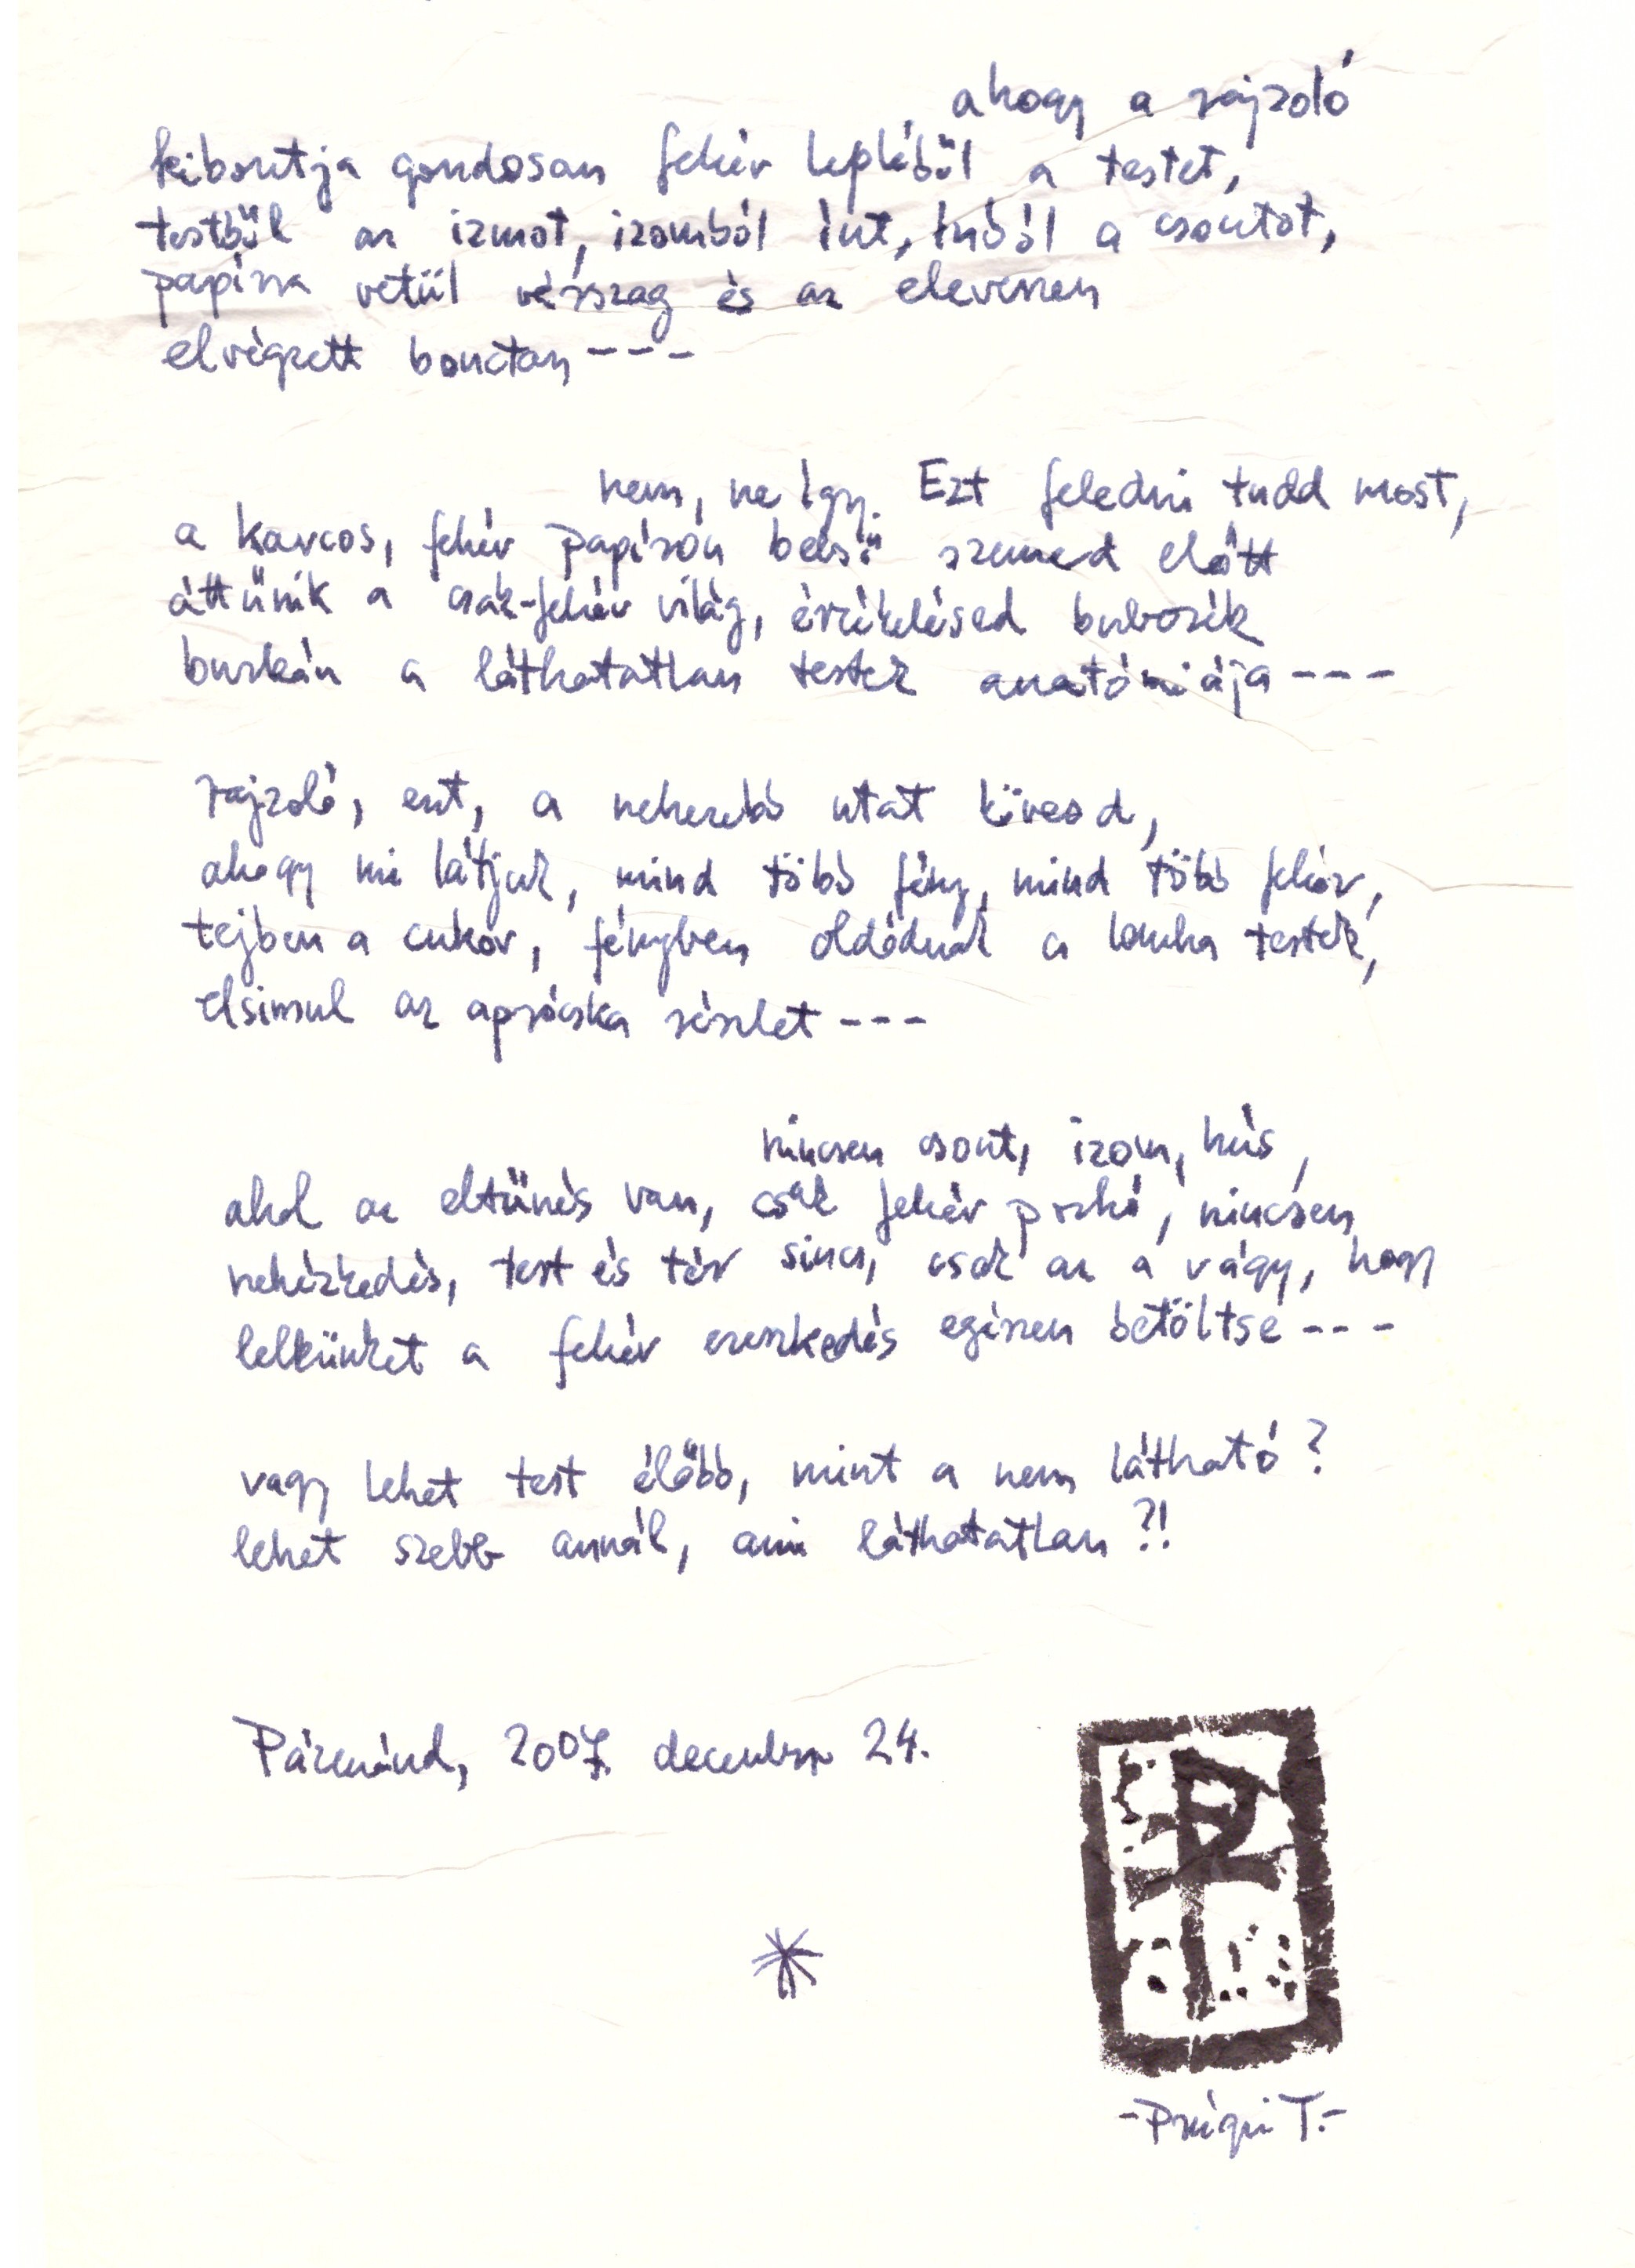 ahogy a rajzoló
kibontja gondosan fehér lepléből a testet,
testből az izmot, izomból ínt, ínból a csontot,
papírra vetül vérszag és az elevenen
elvégzett bonctan ---
nem, ne így. Ezt feledni tudd most,
a karcos, fehér papíron belső szemed előtt
áttűnik a csak-fehér világ, érzékelésed buborék
burkán a láthatatlan testek anatómiája ---
rajzoló, ezt, a nehezebb utat kövesd,
ahogy mi látjuk, mind több fény, mind több fehér,
tejben a cukor, fényben oldódnak a lomha testek,
elsimul az aprócska részlet ---
nincsen csont, izom, hús,
ahol az eltűnés van, csak fehér pozhó, nincsen
nehézkedés, test és tér sincs, csak az a vágy, hogy
lelkünket a fehér ereszkedés egészen betöltse ---
vagy lehet test élőbb, mint a nem látható?
lehet szebb annál, ami láthatatlan?!
Pázmánd, 2007. december 24.
T.-